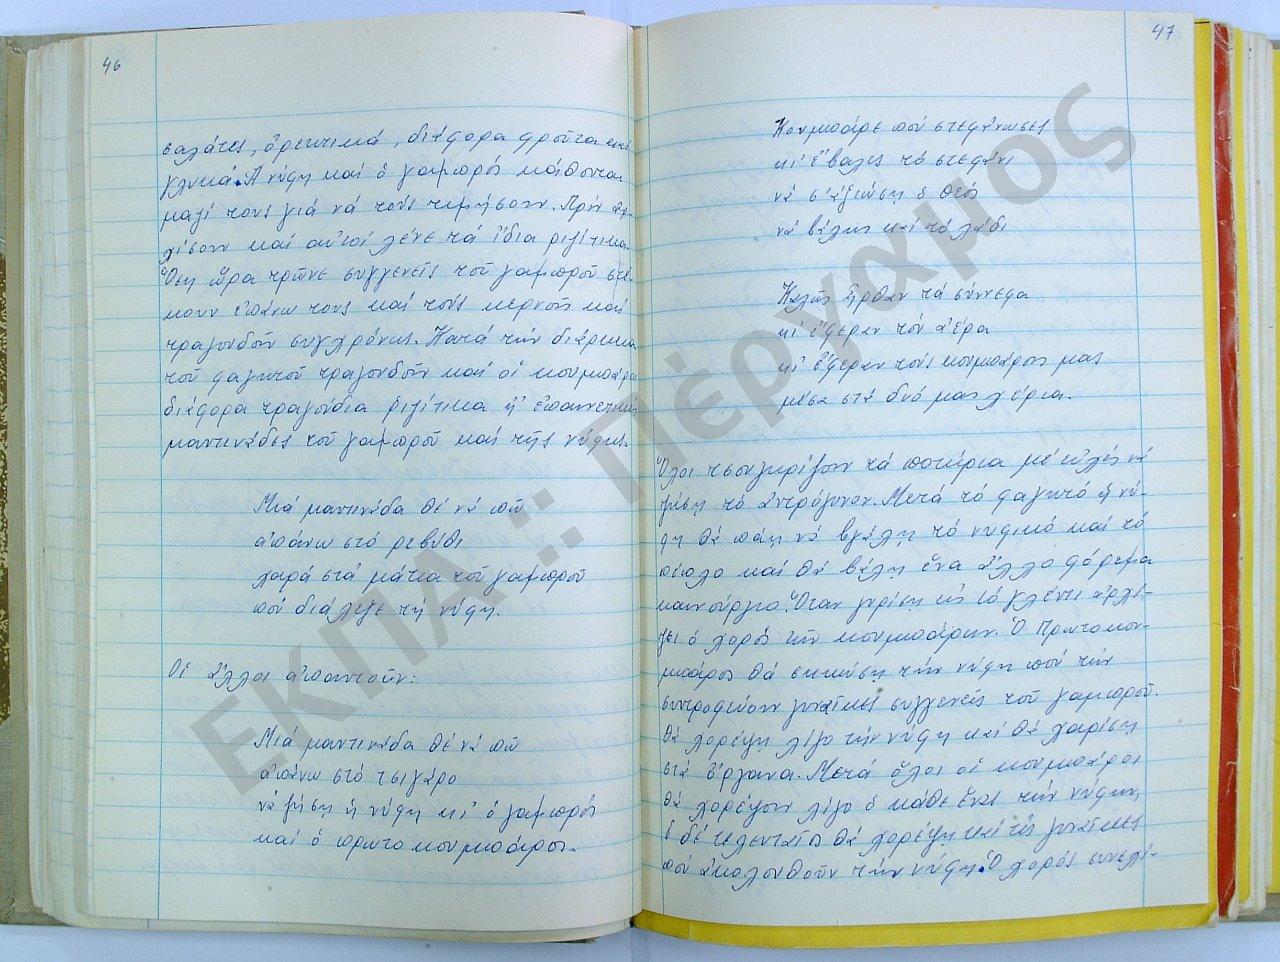 46
σαλάτες, ὀρεκτικά, διάφορα φροῦτα καί
γλυκά. Ἡ νύφη καί ὁ γαμπρός κάθονται
μαζί τους γιά νά τούς τιμήσουν. Πρίν ἀρ-
χίσουν καί αὐτοί λένε τά ἴδια ριζίτικα.
Ὅση ὥρα τρῶνε συγγενεῖς τοῦ γαμπροῦ στέ-
κουν ἐπάνω τους καί τούς κερνοῦν καί
τραγουδοῦν συγχρόνως. Κατά τήν διάρκεια
τοῦ φαγητοῦ τραγουδοῦν καί οἱ κουμπάροι
διάφορα τραγούδια ριζίτικα ἤ ἐπαινετικές
μαντινάδες τοῦ γαμπροῦ καί τῆς νύφης.
Μιά μαντινάδα θέ νά πῶ
ἀπάνω στό ρεβύθι
χαρά στά μάτια τοῦ γαμπροῦ
πού διάλεξε τή νύφη.
Οἱ ἄλλοι ἀπαντοῦν:
Μιά μαντινάδα θέ νά πῶ
ἀπάνω στό τσιγάρο
νά ζήση ἡ νύφη κι' ὁ γαμπρός
καί ὁ πρωτοκουμπάρος.
47
Κουμπάρε πού στεφάνωσες
κι' ἔβαλες τό στεφάνι
νά σ' ἀξιώση ὁ Θεός
νά βάλης καί τό λάδι
Καλῶς ἦρθαν τά σύννεφα
κι' ἔφεραν τόν ἀέρα
κι' ἔφεραν τούς κουμπάρους μας
μέσα στά δυό μας χέρια.
Ὅλοι τσουγκρίζουν τά ποτήρια μέ εὐχές νά
ζήση τό ἀντρόγυνον. Μετά τό φαγητό ἡ νύ-
φη θά πάη νά βγάλη τό νυφικό καί τό
πέπλο καί θά βάλη ἕνα ἄλλο φόρεμα
καινούργιο. Ὅταν γυρίση εἰς τό γλέντι ἀρχί-
ζει ὁ χορός τῶν κουμπάρων. Ὁ Πρωτοκου-
μπάρος θά σηκώση τήν νύφη πού τήν
συντροφεύουν γυναῖκες συγγενεῖς τοῦ γαμπροῦ.
Θά χορέψη λίγο τήν νύφη καί θά χαρίση
στά ὄργανα. Μετά ὅλοι οἱ κουμπάροι
θά χορέψουν λίγο ὁ κάθε ἕνας τήν νύφην
ὁ δέ τελευταῖος θά χορέψη καί τίς γυναῖκες
πού ἀκολουθοῦν τήν νύφη. Ὁ χορός συνεχί-
ΕΚΠΑ :: Πέργαμος